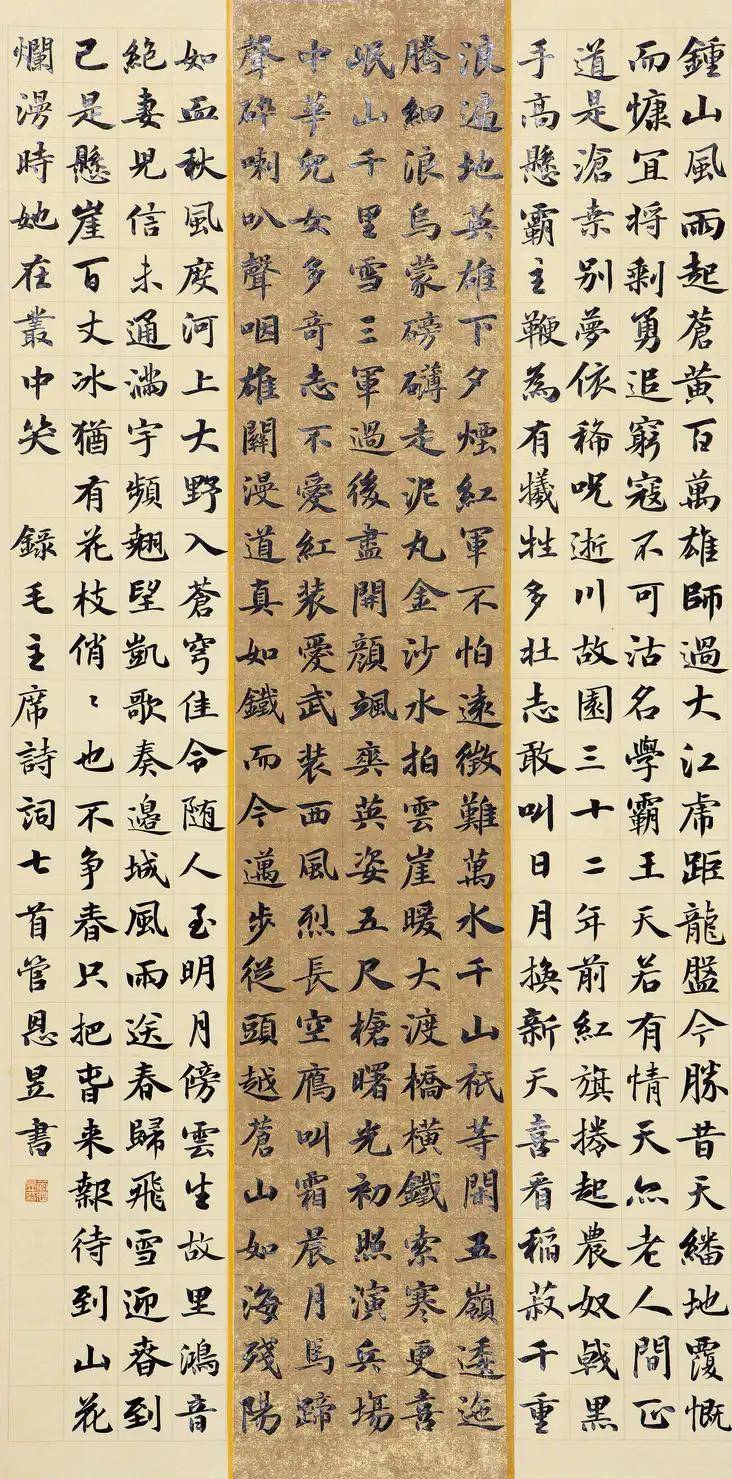 鍾山風雨起蒼黃百萬雄師過大江虎距龍盤今勝昔天繙地覆慨
而慷宜將剩勇追窮寇不可沽名學霸王天若有情天亦老人間正
道是滄桑別夢依稀咒逝川故園三十二年前紅旗捲起農奴戟黑
手高懸霸主鞭為有犧牲多壯志敢叫日月換新天喜看稻菽千重
浪遍地英雄下夕煙紅軍不怕遠徵難萬水千山衹等閑五嶺逶迤
騰細浪烏蒙磅礴走泥丸金沙水拍雲崖暖大渡橋橫鐵索寒更喜
岷山千里雪三軍過後盡開顏颯爽英姿五尺槍曙光初照演兵場
中華兒女多奇志不愛紅裝愛武裝西風烈長空鷹叫霜晨月馬蹄
聲碎喇叭聲咽雄關漫道真如鐵而今邁步從頭越蒼山如海殘陽
如血秋風度河上大野入蒼穹佳令随人至明月傍雲生故里鴻音
絕妻兒信未通滿宇頻翹望凱歌奏邊城風雨送春歸飛雪迎春到
已是懸崖百丈冰猶有花枝俏〻也不爭春只把春來報待到山花
爛漫時她在叢中笑 錄毛主席詩詞七首管恩昱書